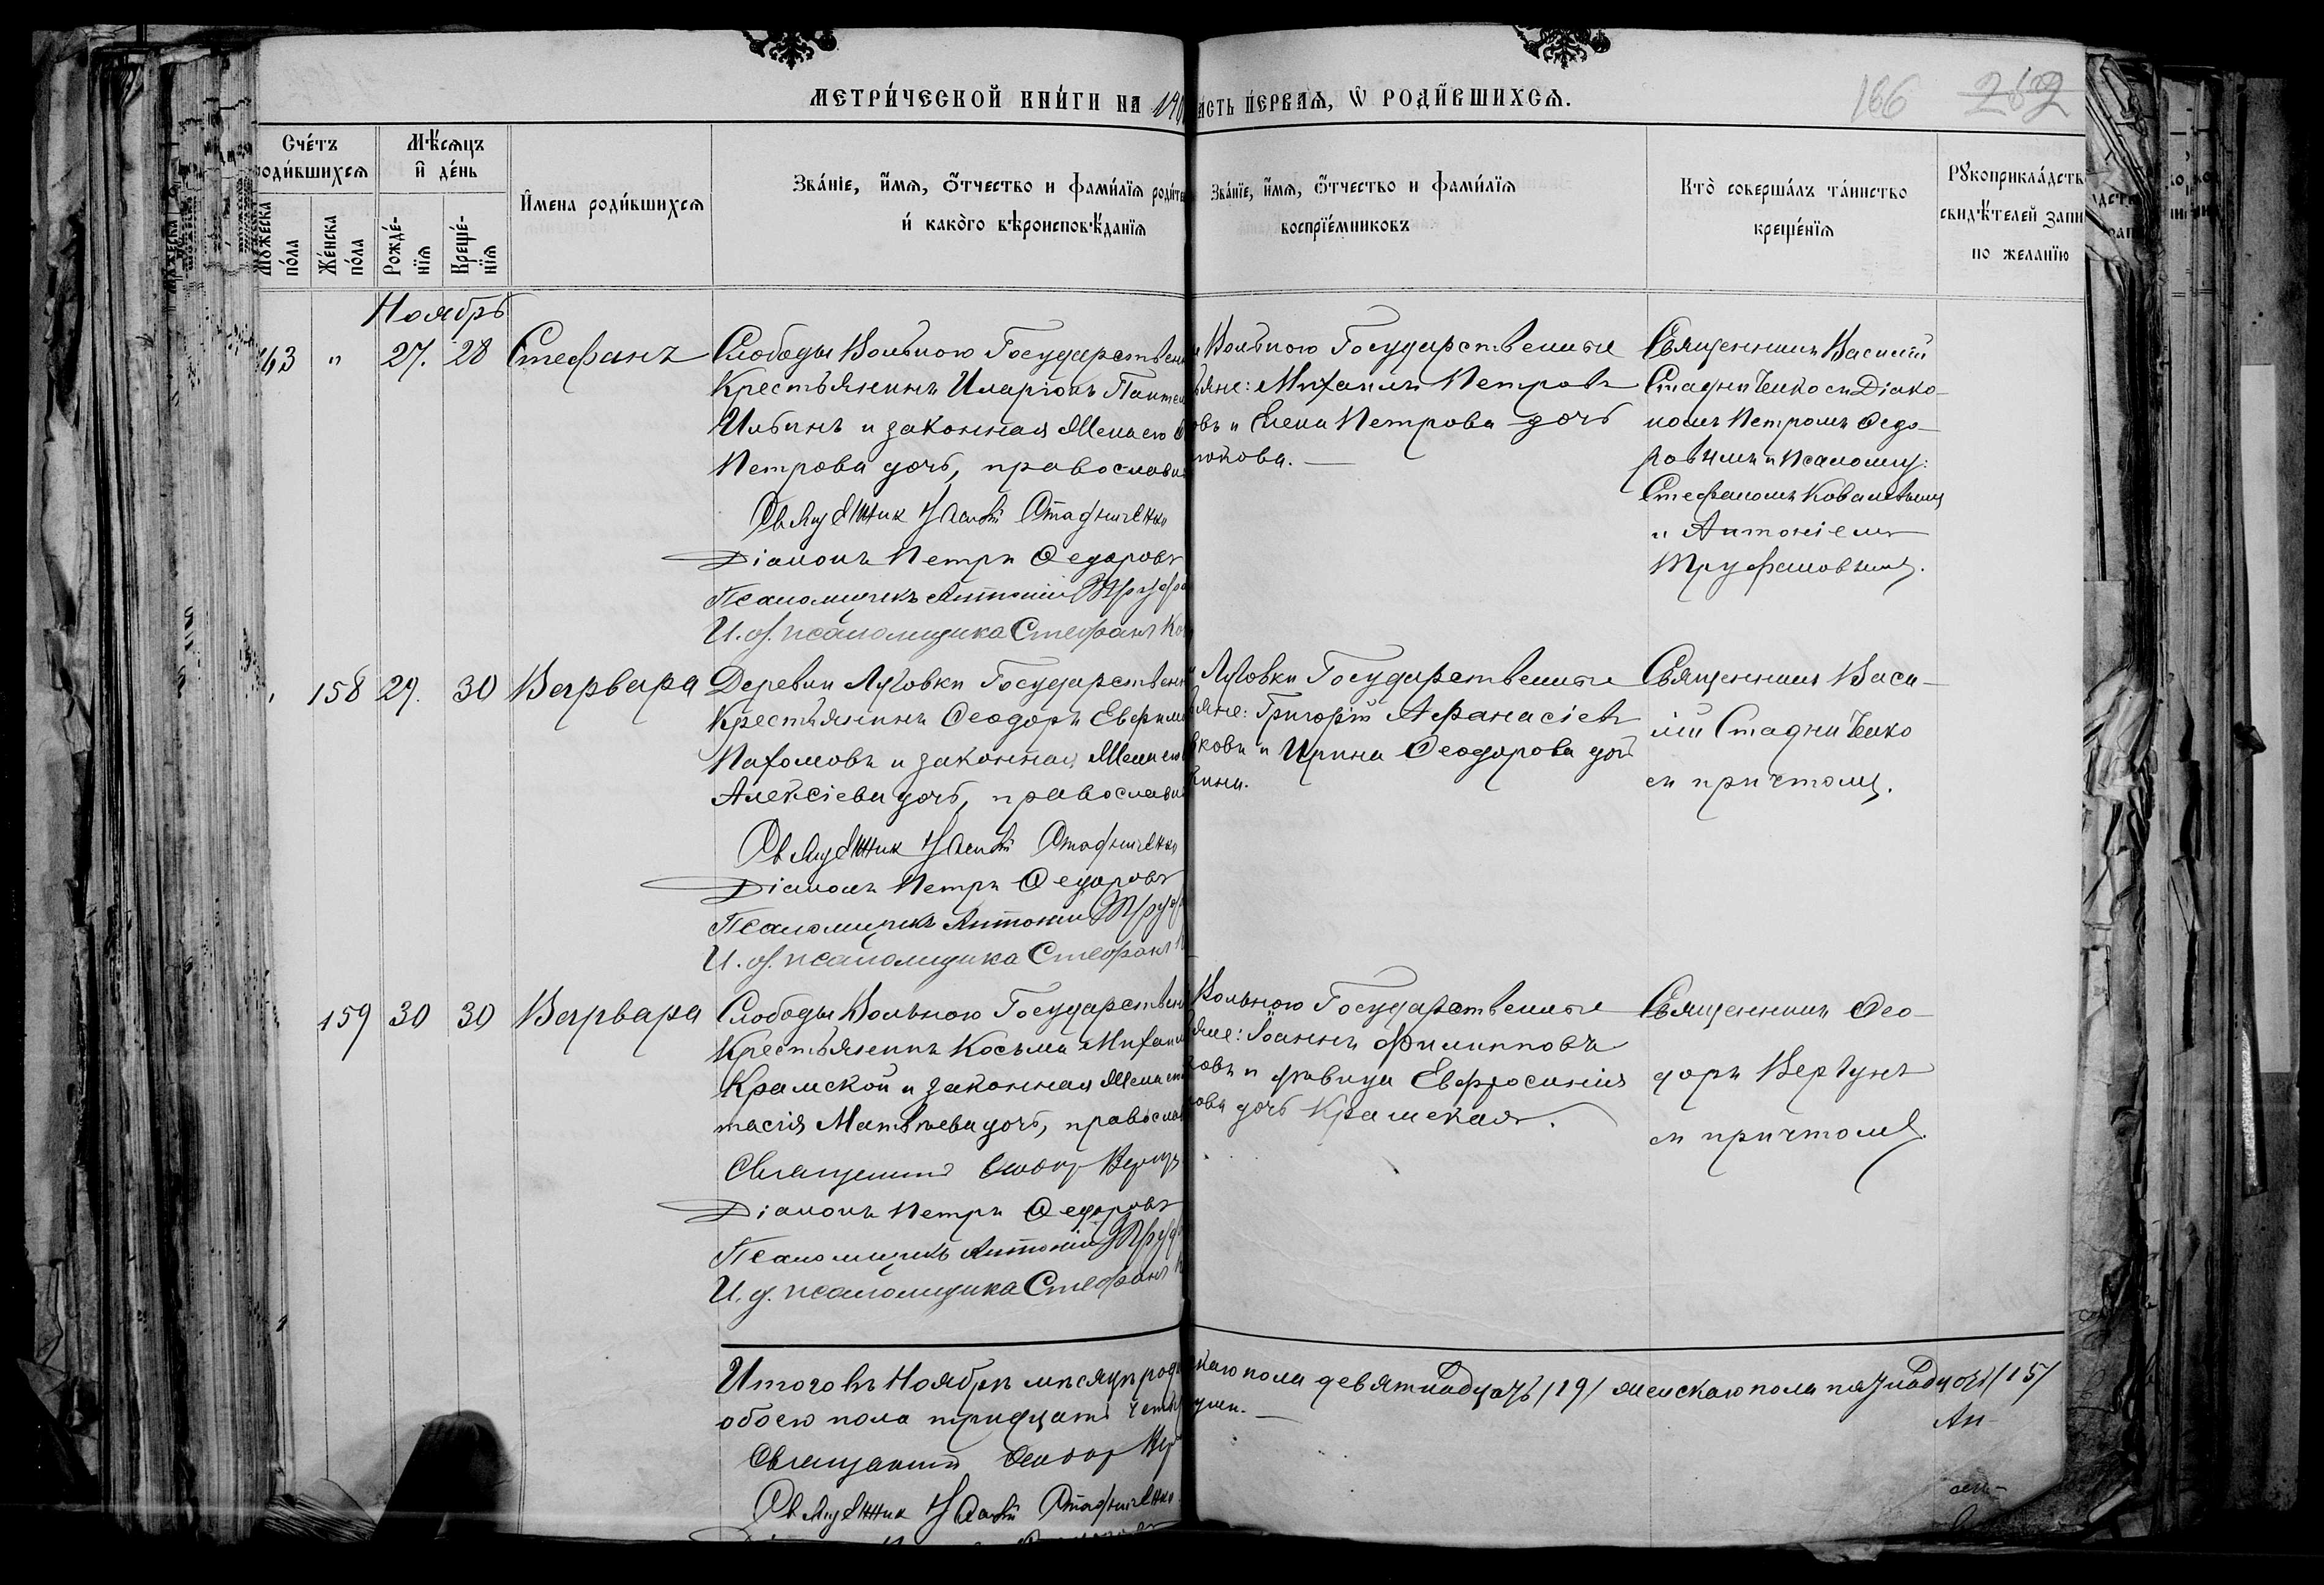 МЕТРИ́ЧЕСКОЙ КНИ́ГИ НА 190
АСТЬ ПЕ́РВАЯ, Ѡ РОДИ́ВШИХСЯ.
166 262
Сче́тъ
роди́вшихся
Му́жеска по́ла
Же́нска по́ла
Мѣ́сяцъ
и де́нь
Рожде́-
нїя
Креще́-
нїя
И́мена роди́вшихся
Зва́нїе, и́мя, о́тчество и фами́лїя роди́те
и како́го вѣроисповѣ́данїя
Зва́нїе, и́мя, о́тчество и фами́лїя
воспрїе́мниковъ
Кто̀ соверша́лъ та́инство
креще́нїя
Рукоприкла́дств
свидѣ́телей запи
по желанїю
Ноябрь
163 " 27. 28 Стефанъ
Слободы Вольного Государствен
Крестьянинъ Иларіонъ Панте
Ильинъ и законная жена его
Петрова дочь, православн
Священник Василій Стадниченко
Діаконъ Петръ Ѳедоровъ
Псаломщикъ Антоній Труфа
И. об. псаломщика Стефанъ Ко
Вольного Государственные
ьяне: Михаилъ Петровъ
овъ и Елена Петрова дочь
Священникъ Василій
Стадниченко съ Діако-
номъ Петромъ Ѳедо-
ровымъ и псаломщ:
Стефаномъ Ковалевымъ
и Антоніемъ
Труфановымъ.
158 29. 30 Варвара
Деревни Луговки Государствен
Крестьянинъ Ѳеодоръ Евфим
Пахомовъ и законная жена его
Алексіева дочь, православн
Священник Василій Стадниченко
Діаконъ Петръ Ѳедоровъ
Псаломщикъ Антоній Труф
И. об. псаломщика Стефанъ К
Луговки Государственные
ьяне: Григорій Аѳанасіевъ
ковъ и Ирина Ѳеодорова доч
кина.
Священникъ Васи-
лій Стадниченко
съ причтомъ.
159 30 30 Варвара
Слободы Вольного Государствен
Крестьянинъ Косьма Михаил
Крамской и законная жена его
тасія Матвѣева дочь, правосла
Священникъ Ѳеодор Вергун
Діаконъ Петръ Ѳедоровъ
Псаломщикъ Антоній Труф
И. д. псаломщика Стефанъ К
Вольного Государственные
яне: Іоаннъ Филипповъ
ковъ и дѣвица Евфросинія
ова дочь Крамская.
Священникъ Ѳео-
доръ Вергунъ
съ причтомъ.
Итого въ Ноябрѣ мѣсяцѣ роди
скаго пола девятнадцать /19/ женскаго пола пятнадцать /15/
обоего пола тридцать четыре
Священникъ Ѳеодор Вер
Священник Василій Стадниченко